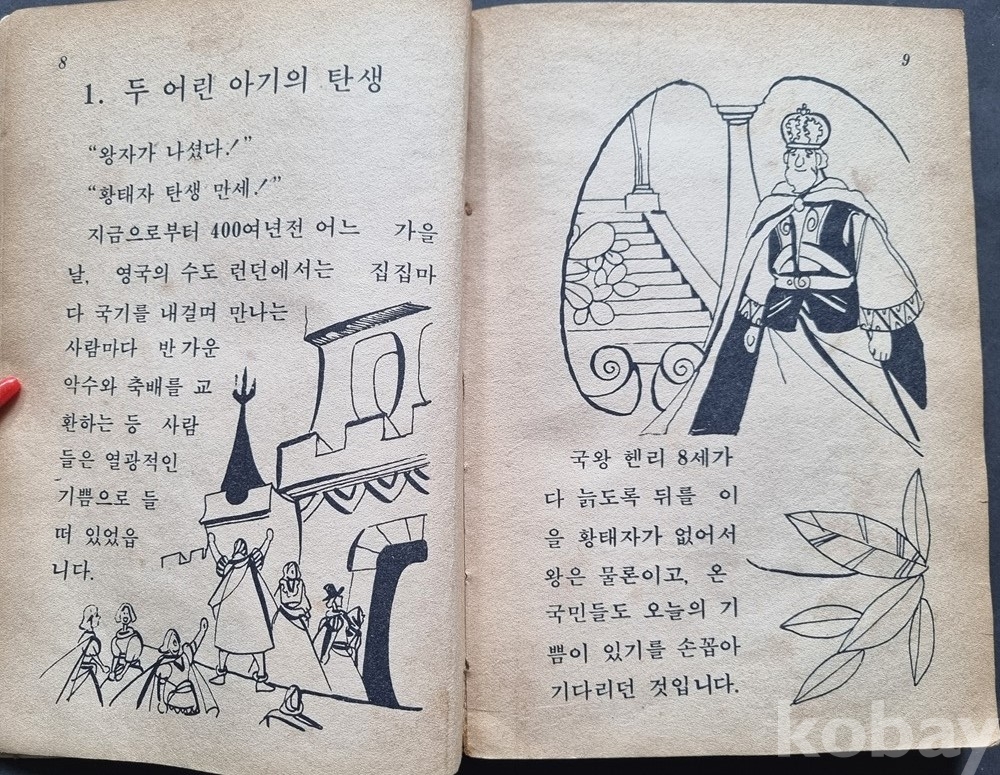 8
1. 두 어린 아기의 탄생
“왕자가 나셨다!”
“황태자 탄생 만세!”
지금으로부터 400여년전 어느 가을
날, 영국의 수도 런던에서는 집집마
다 국기를 내걸며 만나는
사람마다 반가운
악수와 축배를 교
환하는 등 사람
들은 열광적인
기쁨으로 들
떠 있었읍
니다.
9
국왕 헨리 8세가
다 늙도록 뒤를 이
을 황태자가 없어서
왕은 물론이고, 온
국민들도 오늘의 기
쁨이 있기를 손꼽아
기다리던 것입니다.
kobay